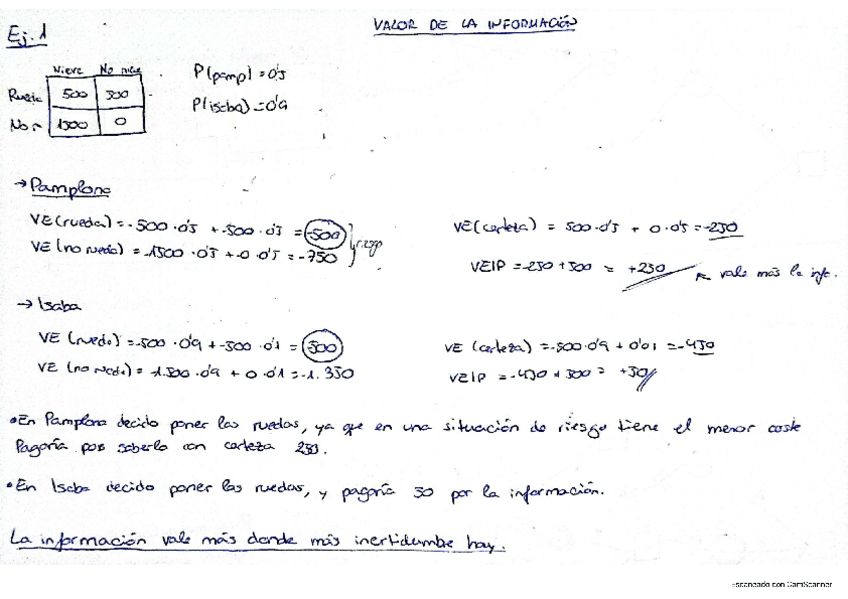 VALOR DE LA INFORMACIÓN
Ej. 1
Nieve No nieve
Rueda 500 500
No r 1500 0
P(pamp) = 0'5
P(isaba) = 0'9
→ Pamplona
VE(rueda) = -500 · 0'5 + -500 · 0'5 = -500
VE(no rueda) = -1500 · 0'5 + -0 · 0'5 = -750
riesgo
VE(certeza) = 500 · 0'5 + 0 · 0'5 = -250
VEIP = -250 + 500 = +250 ← vale más la info.
→ Isaba
VE (rueda) = -500 · 0'9 + -500 · 0'1 = 500
VE (no rueda) = -1.500 · 0'9 + 0 · 0'1 = -1.350
VE (certeza) = -500 · 0'9 + 0'01 = -450
VEIP = -450 + 500 = +50
• En Pamplona decido poner las ruedas, ya que en una situación de riesgo tiene el menor coste
Pagaría por saberlo con certeza 250.
• En Isaba decido poner las ruedas, y pagaría 50 por la información.
La información vale más donde más inertidumbre hay.
Escaneado con CamScanner